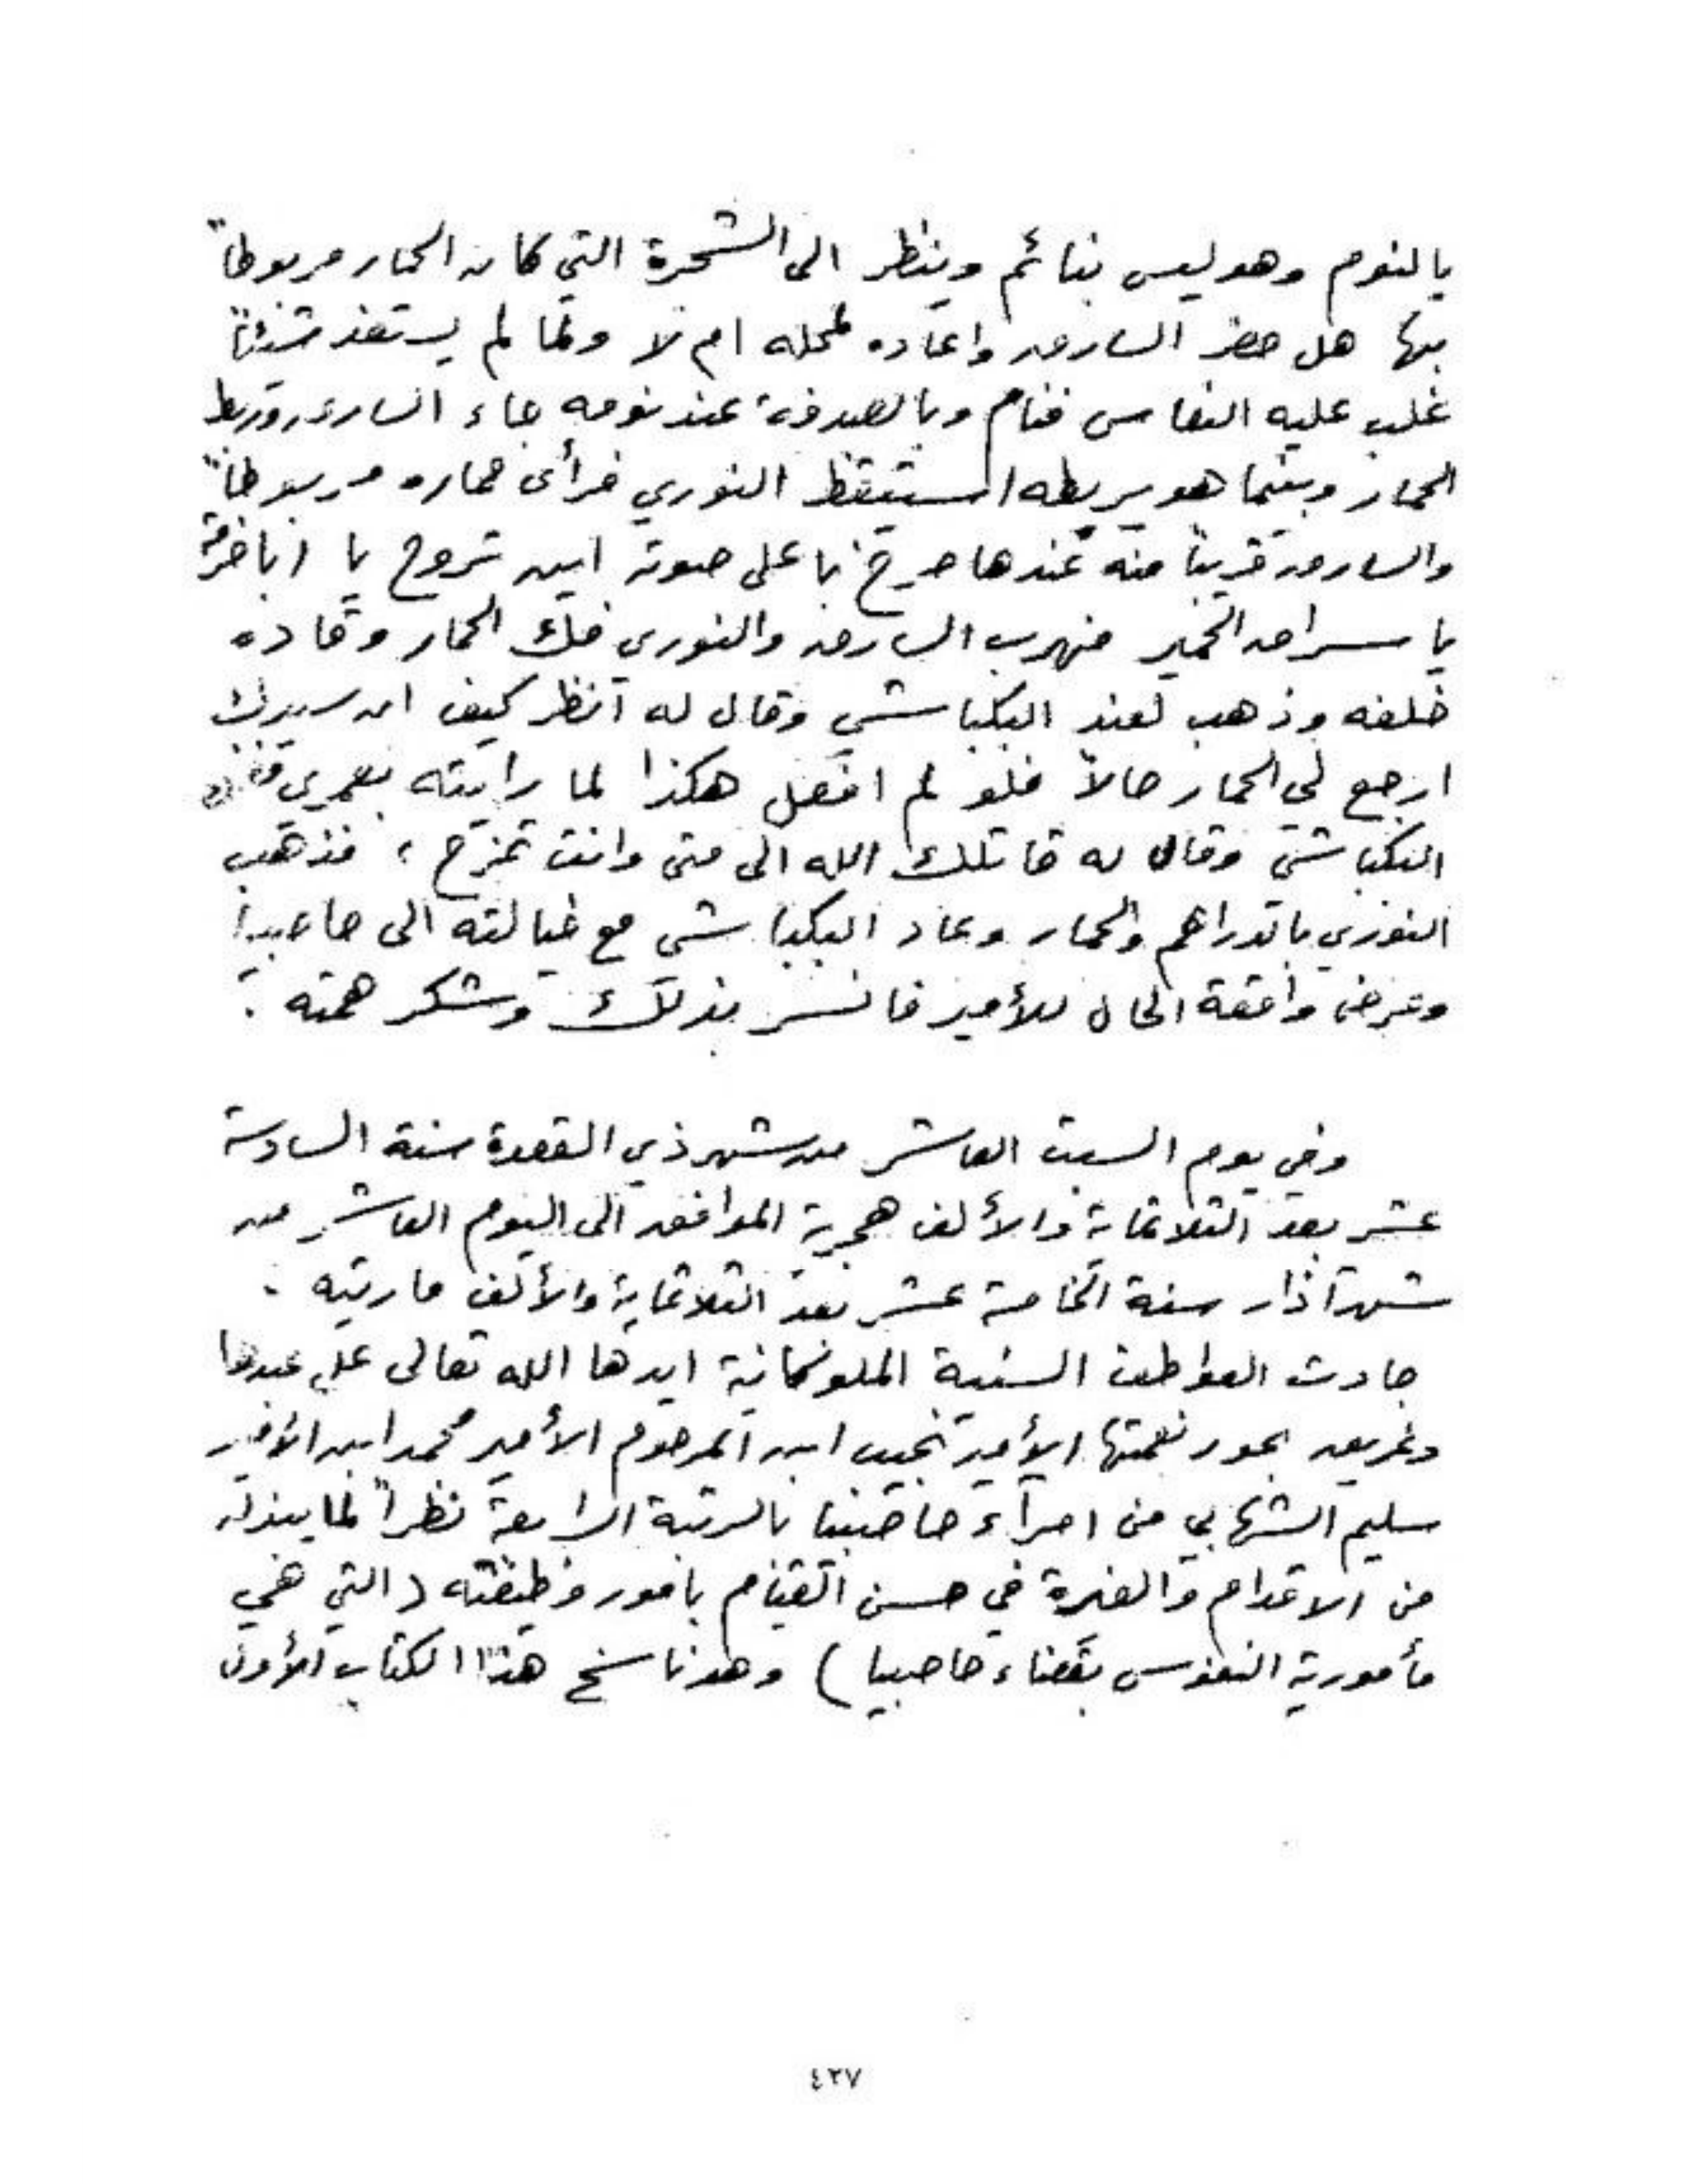 بالنوم وهو ليس بنائم وينظر الى الشجرة التي كان الحمار مربوطاً
بها هل حضر السارق واعاده لمحله ام لا ولما لم يستفد شيئاً
غلب عليه النعاس فنام وبالصدفة عند نومه جاء السارق وربط
الحمار وبينما هو يربطه استيقظ النوري فرأى حماره مربوطاً
والسارق قريباً منه عندها صرخ باعلى صوته اين تروح يا
يا سراق الحمير فهرب السارق والنوري فك الحمار وقاده
خلفه وذهب لعند البكباشي وقال له انظر كيف ان سيدك
ارجع لي الحمار حالاً فلو لم افعل هكذا لما رايته بعمري
البكباشي وقال له قاتلك الله الى متى وانت تمزح ، فذهب
النوري بالدراهم والحمار وعاد البكباشي مع خيالته الى حاصبيا
وعرض واقعة الحال للأمير فانسر بذلك وشكر همته .
وفي يوم السبت العاشر من شهر ذي القعدة سنة السادسة
عشر بعد الثلاثماية والألف هجرية الموافق الى اليوم العاشر من
شهر آذار سنة الخامسة عشر بعد الثلاثماية والألف مارتيه .
جادت العواطف السنية الملوكانية ايدها الله تعالى على عبدها
وغريق بحور نعمتها الأمير نجيب ابن المرحوم الأمير محمد ابن الأمير
سليم الشهابي من امرآء حاصبيا بالرتبة الرابعة نظراً لما يبذله
من الاقدام والغيرة في حسن القيام بامور وظيفته ( التي هي
مأمورية النفوس بقضاء حاصبيا ) وهو ناسخ هذا الكتاب الأول
٤٢٧